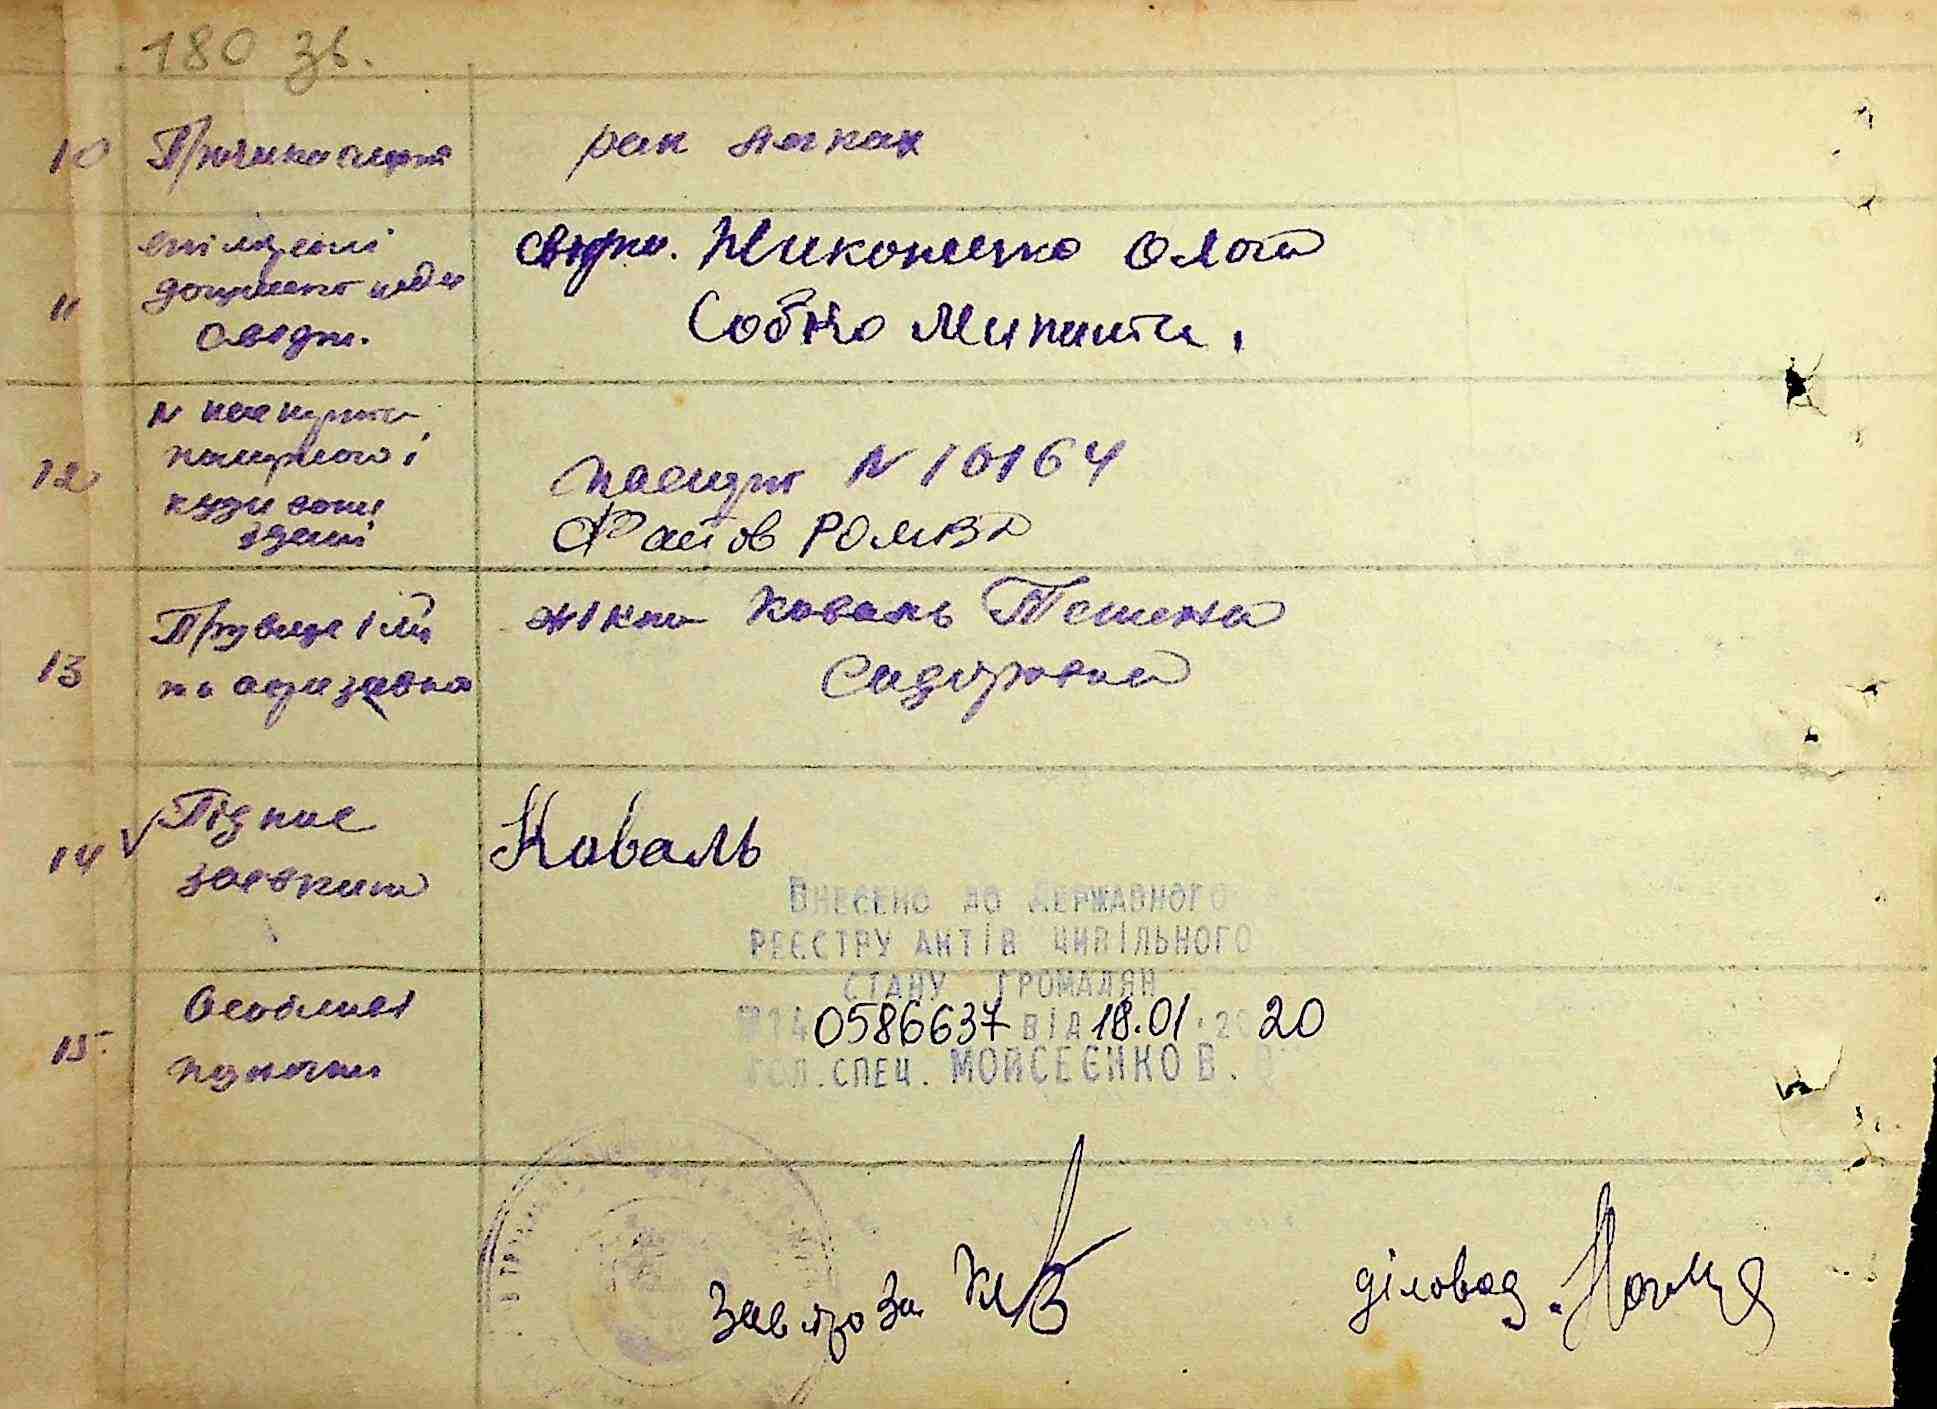 180 зв.
10 Причина смерті
рак легких
11
документ
свідки.
свідки. Никоненко Олот
Собко Микита.
12
N паспорта
померлого і
куди вони
здані
паспорт N 10164
Фастов РОМВД
13
Прізвище імя
та адреса заявника
жінка Коваль Тетяна
Сидоровна
14
Підпис
заявника
Коваль
ВНЕСЕНО ДО ДЕРЖАВНОГО
РЕЄСТРУ АКТІВ ЦИВІЛЬНОГО
СТАНУ ГРОМАДЯН
№14 0586637 ВІД 18.01.2020
ГОЛ. СПЕЦ. МОЙСЕЄНКО В.
15
Особливі
помітки
діловод